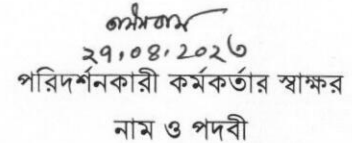 ২৭.০৪.২০২৬
পরিদর্শনকারী কর্মকর্তার স্বাক্ষর
নাম ও পদবী